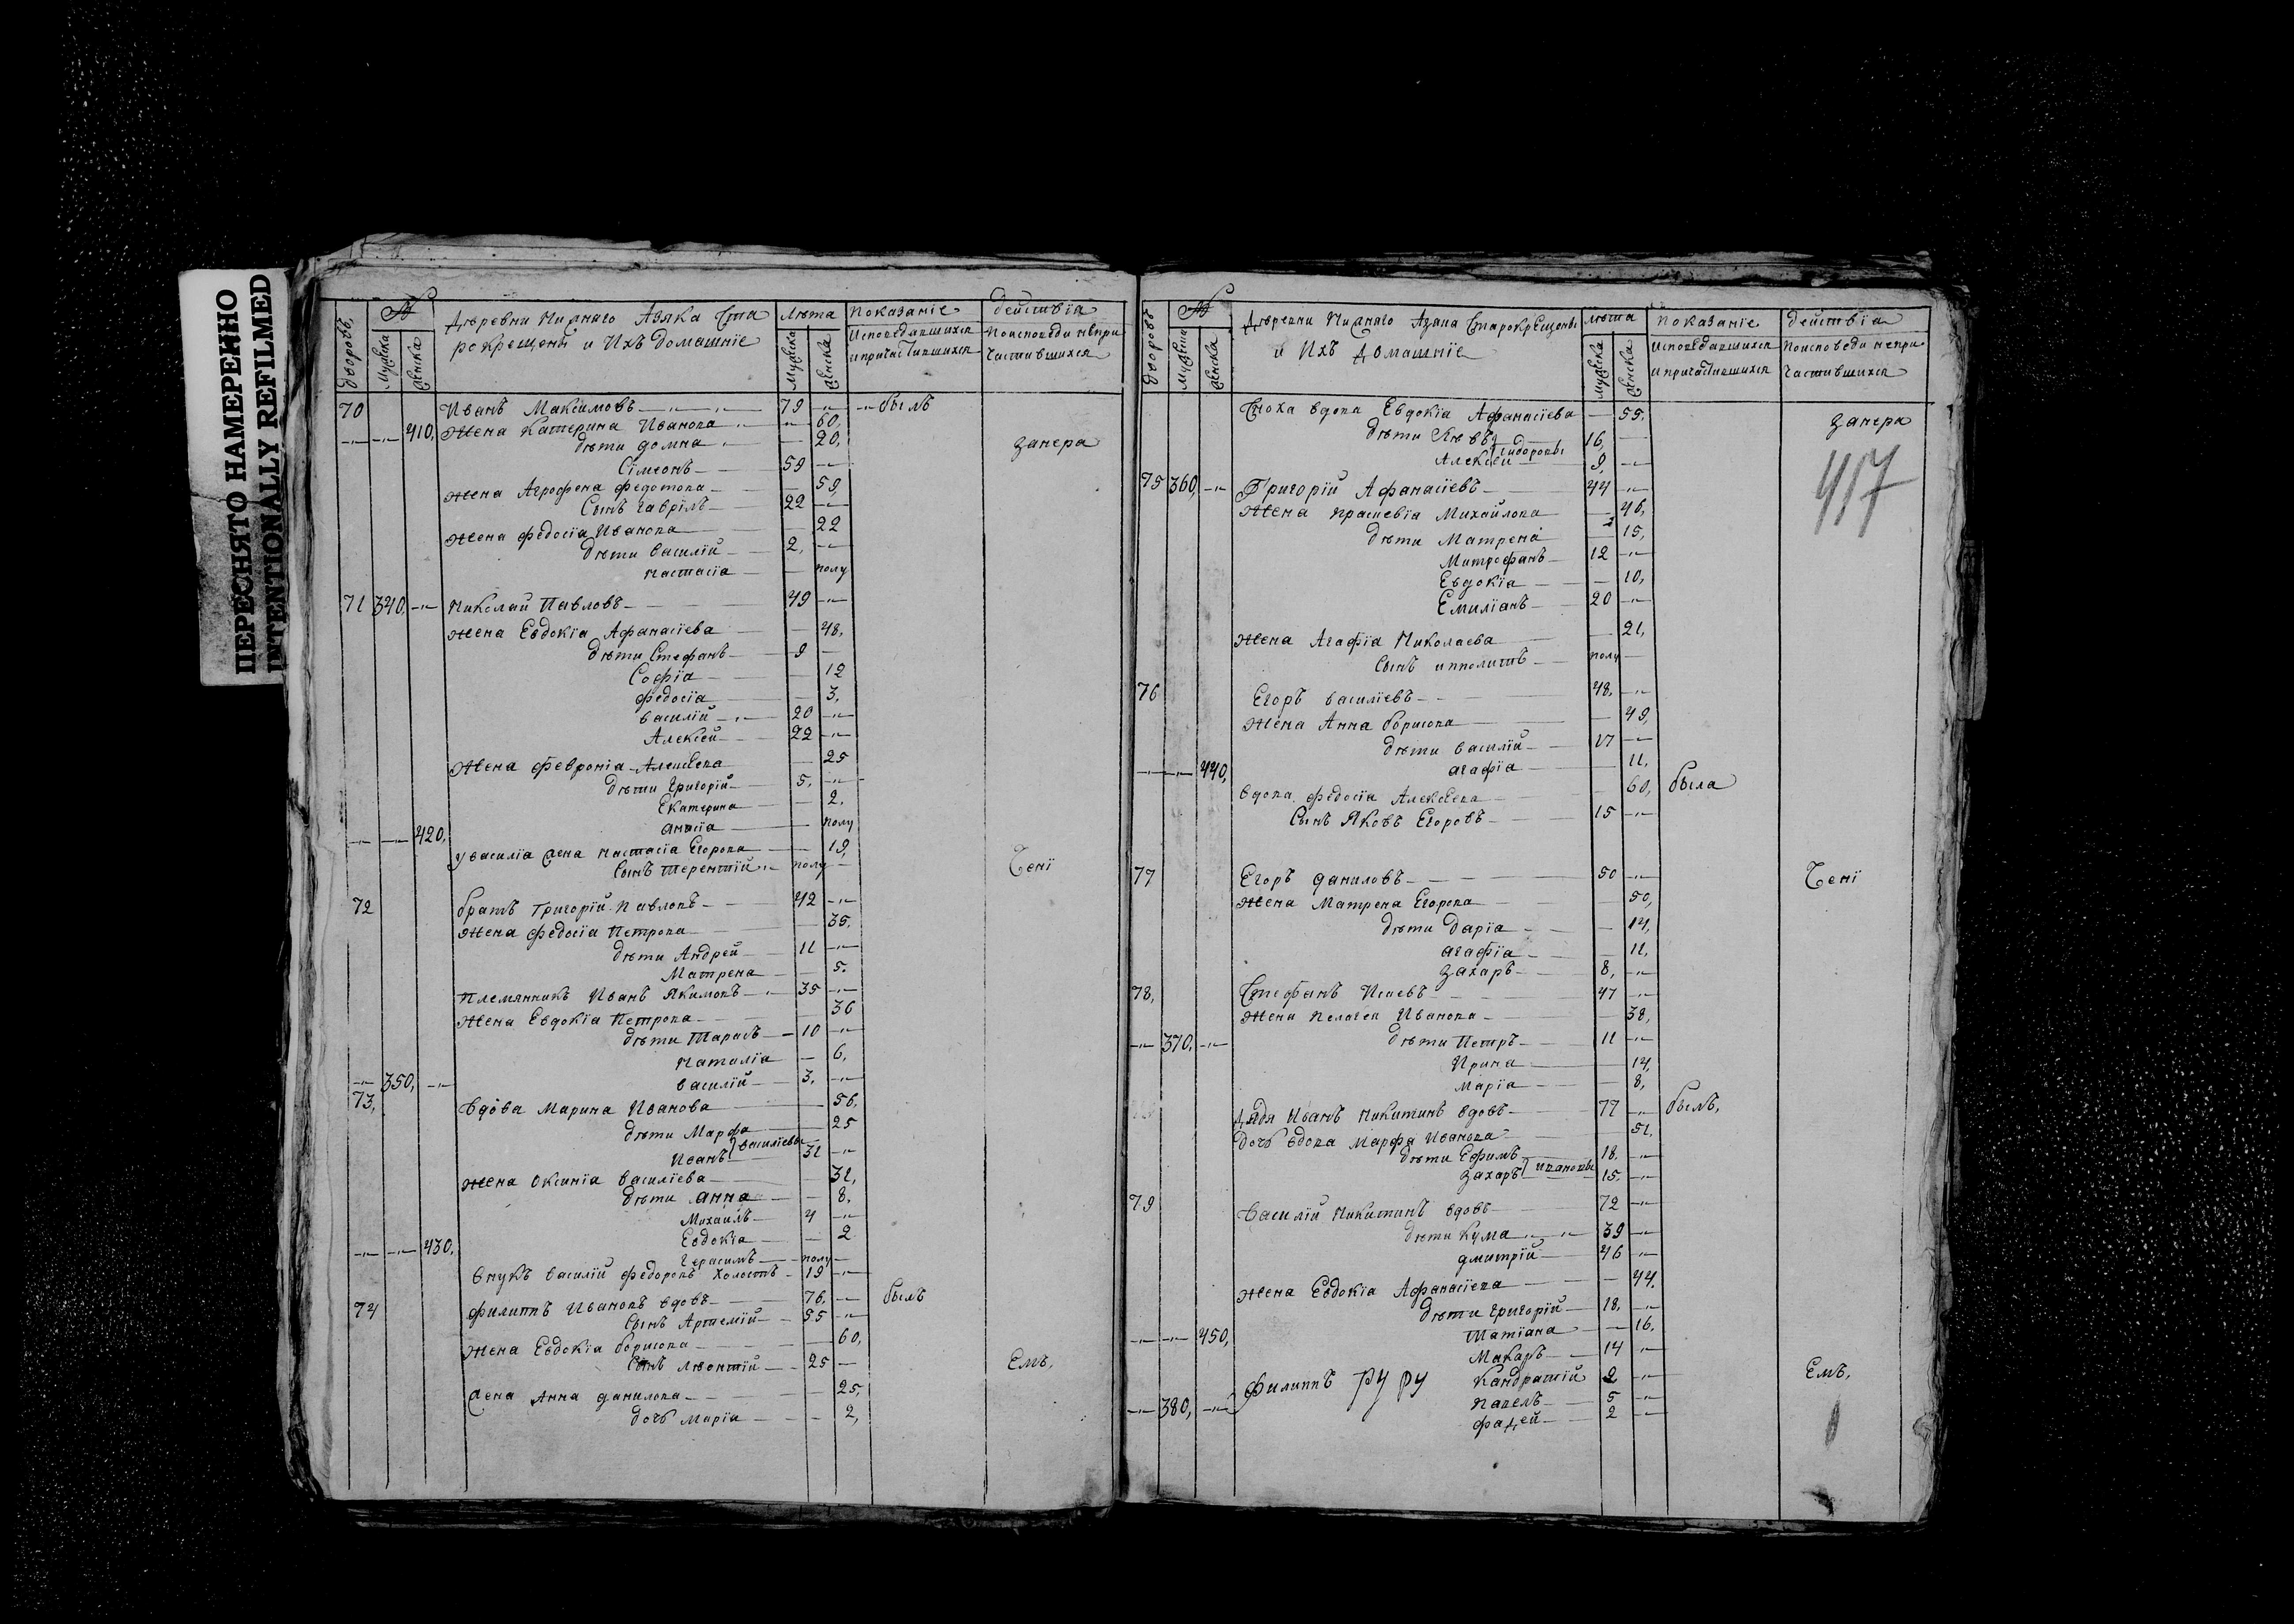 ПЕРЕСНЯТО НАМЕРЕННО
INTENTIONALLY REFILMED
дворовъ № мужска женска
Деревни Нижняго Азяка Ста
рокрещены и Ихъ домашніе
Лѣта мужска женска
показаніе
Исповедавшихся
и причастившихся
действія
Поисповеди непри
частившихся
70 Иванъ Максимовъ 79 былъ
410, Жена Катерина Иванова 60,
дѣти домна 20,
Сімеонъ 59
Жена Агрофена федотова 59,
Сынъ гаврілъ 22
Жена федосіа Иванова 22
дѣти василій 2,
настасіа полу
71 340, Николай Павловъ 49
жена Евдокіа Афанасіева 48,
дѣти Стефанъ 9
Софіа 12
федосіа 3,
василій 20
Алексей 22
Жена феврониа Алексеева 25
дѣти григорій 5,
Екатерина 2,
420, полу
у василіа жена настасіа Егорова 19,
Сынъ терентий полу
72 братъ Григорій Павловъ 42
Жена федосіа Петрова 35,
дѣти Андрей 11
Матрена 5,
племянникъ Иванъ Якимовъ 35
Жена Евдокіа Петрова 36
дѣти Тарасъ 10
наталіа 6,
350, василій 3,
73, вдова Марина Иванова 56,
дѣти Марфа 25
Иванъ василіевы 31
жена Оксиніа василіева 31,
дѣти анна 8,
Михаилъ 4
Евдокіа 2
430, герасимъ полу
внукъ василій федоровъ холостъ 19
74 филиппъ Ивановъ вдовъ 76, былъ
Сынъ Артемій 55
жена Евдокіа борисова 60,
Сынъ леонтій 25
жена Анна данилова 25,
дочь Маріа 2,
занера
Чені
Емъ,
дворовъ № мужска женска
Деревни Нижняго Азяка Старокрещены
и Ихъ домашніе
лѣта мужска женска
показаніе
Исповедавшихся
и причастившихся
действіа
Поисповеди непри
частившихся
Сноха вдова Евдокіа Афанасіева 55,
дѣти Левъ 16,
Алексей Сидоровы 9,
занера
417
75 360, Григорій Афанасіевъ 44
жена прасковіа Михайлова 46,
дѣти Матрена 15,
Митрофанъ 12
Евдокіа 10,
Емиліанъ 20
жена Агафіа Николаева 21,
Сынъ ипполитъ полу
76 Егоръ василіевъ 48,
жена Анна борисова 49,
дѣти василій 17
440, агафіа 11,
вдова федосіа Алексеева 60, была
Сынъ Яковъ Егоровъ 15
77 Егоръ даниловъ 50 Чені
жена Матрена Егорова 50,
дѣти даріа 14,
агафіа 11,
захаръ 8,
78, Стефанъ Исаевъ 47
жена пелагея Иванова 38,
370, дѣти Петръ 11
Ирина 14,
Маріа 8,
дядя Иванъ Никитинъ вдовъ 77 былъ,
дочь вдова Марфа Иванова 51,
дѣти Ефимъ 18,
захаръ ивановы 15,
79 василій Никитинъ вдовъ 72
дѣти кузма 39
дмитрій 46
жена Евдокіа Афанасіева 44,
дѣти григорій 18,
450, Татіана 16,
Макаръ 14
филиппъ Кандратій 2 Емъ,
380, павелъ 5
фадей 2